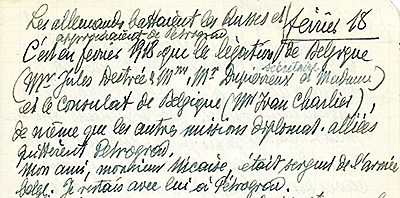 Les allemands battaient les Russes et février 18
approchaient de Petrograd.
C'est en février 1918 que la légation de Belgique
secrétaire
(Mr Jules Destrée & Mme, Mr et Madame)
et le Consulat de Belgique (Mr Jean Charlier),
de même que les autres missions diplomat. alliées
quittèrent Petrograd.
Mon ami, monsieur Nicaise, était sergent de l'armée
belge. Je restais avec lui à Pétrograd.